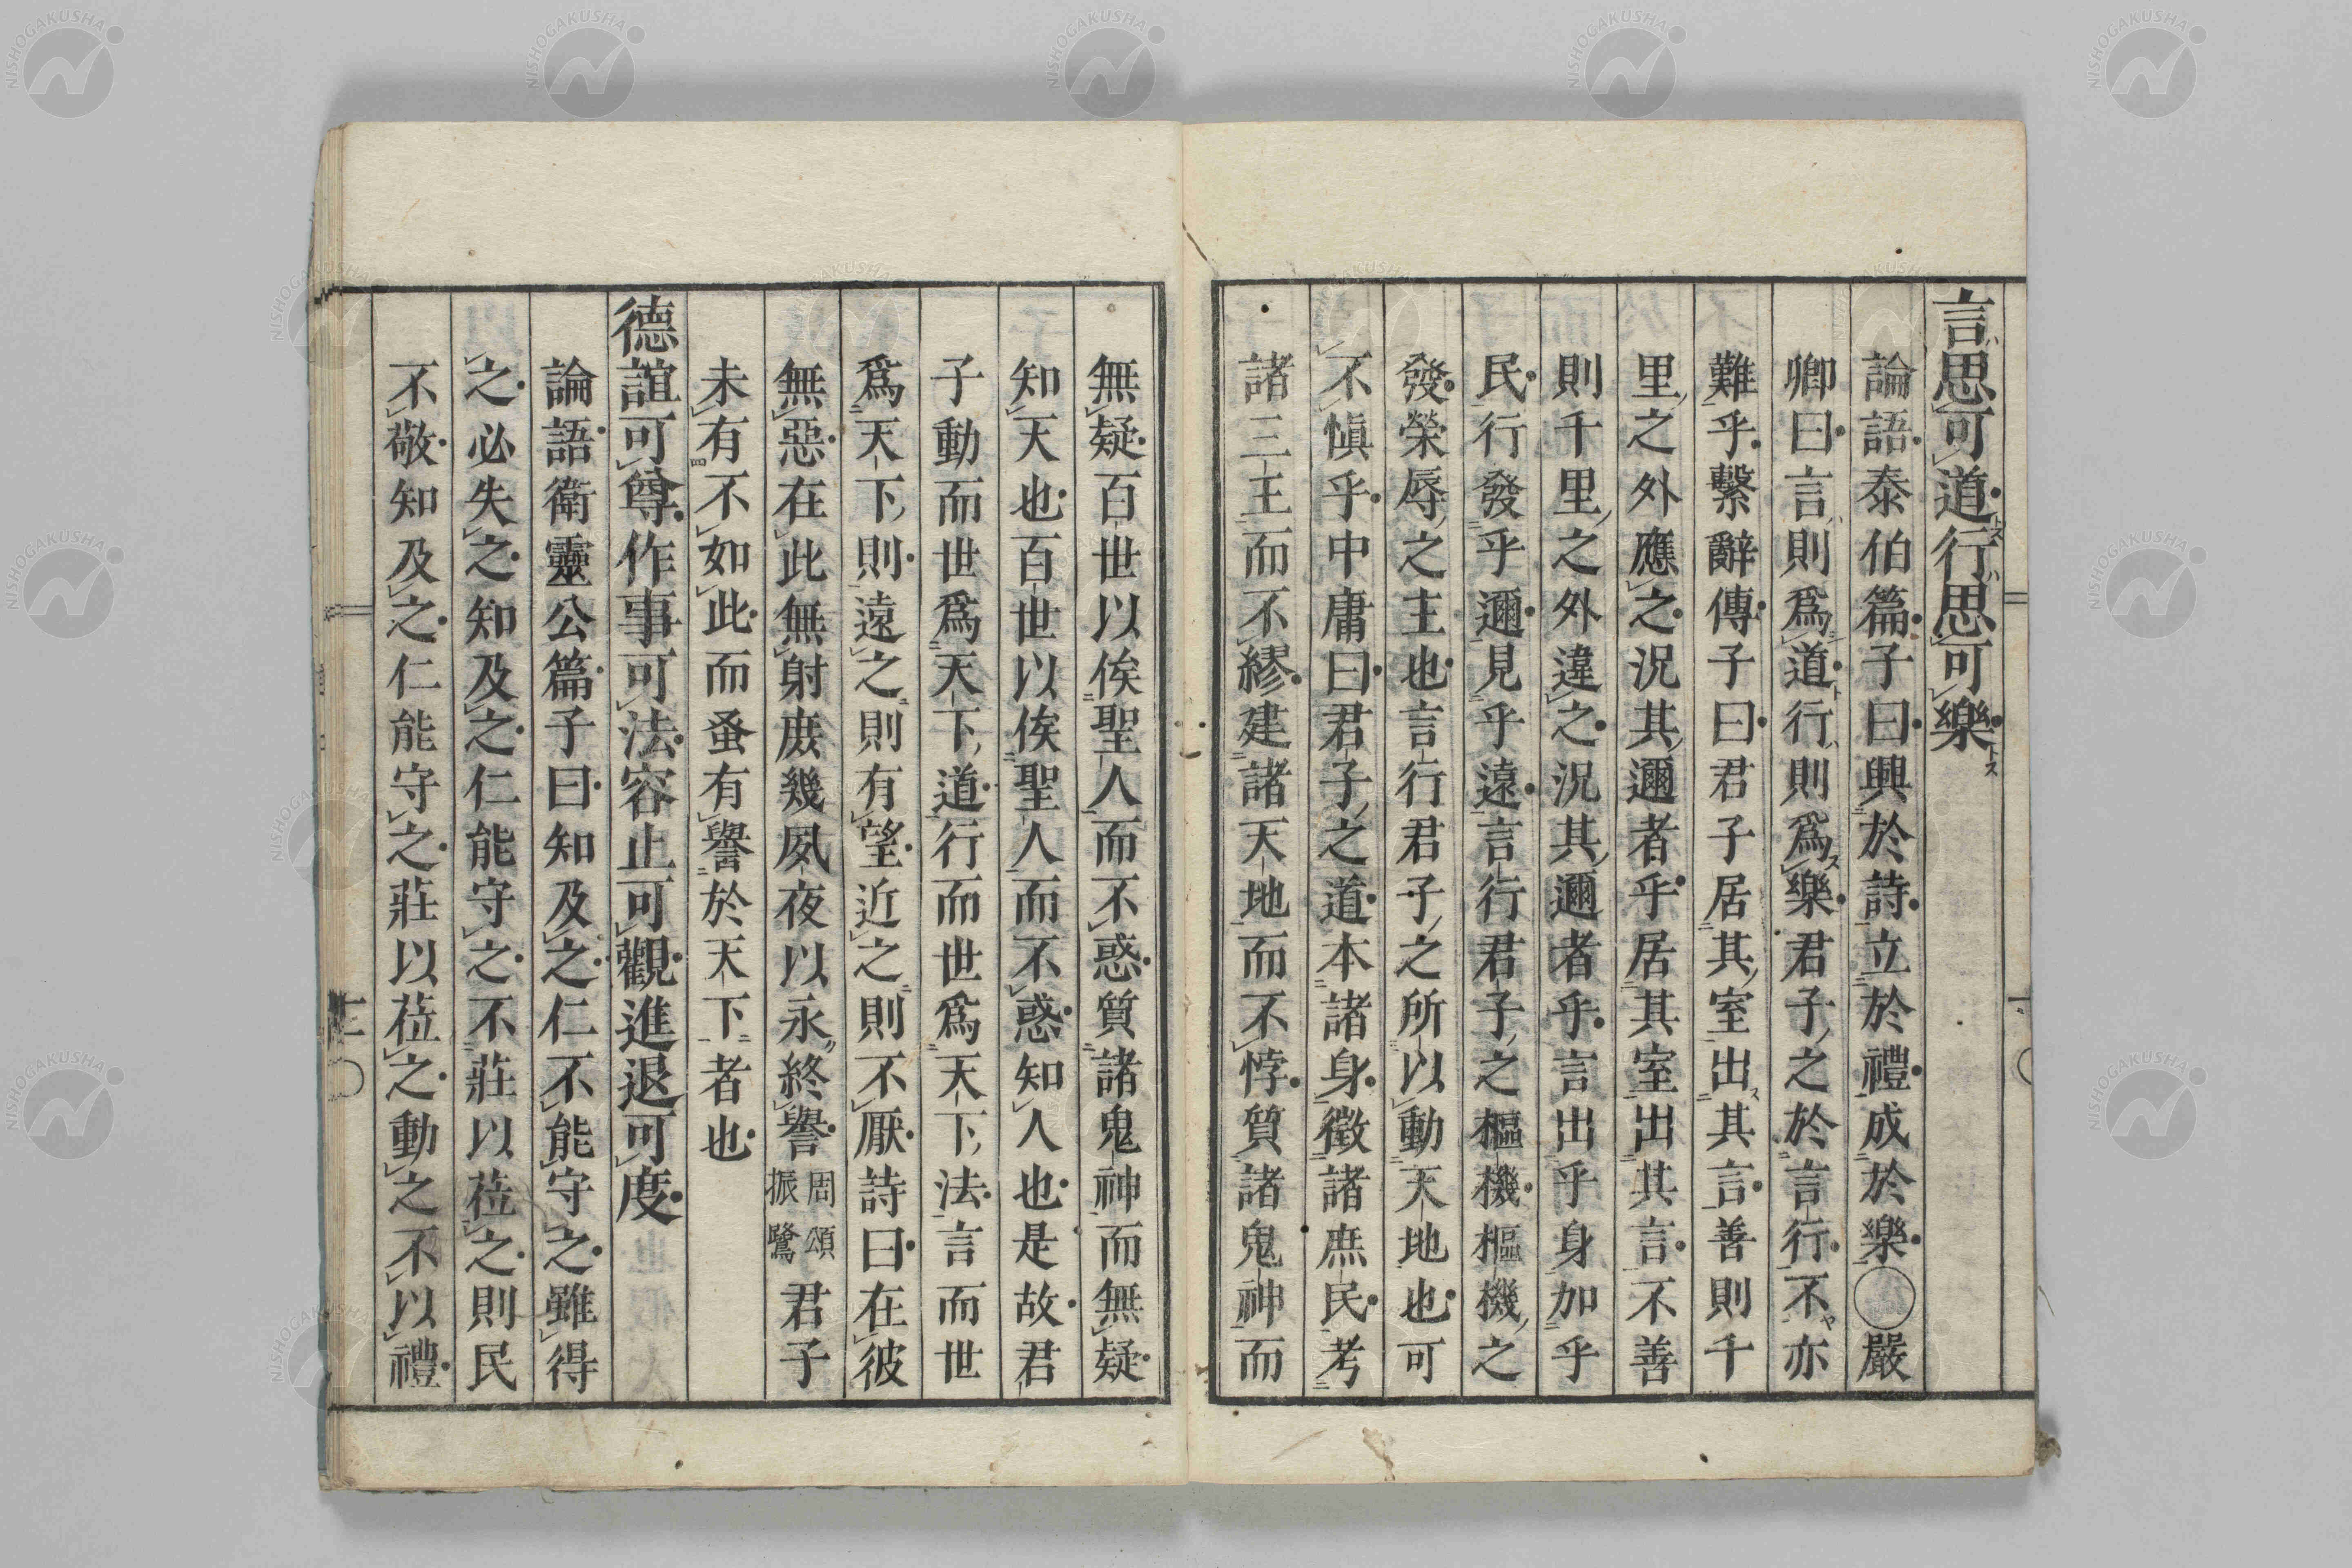 言思可道行思可樂
論語泰伯篇子曰興於詩立於禮成於樂〇嚴
卿曰言則爲道行則爲樂君子之於言行不亦
難乎繫辭傳子曰君子居其室出其言善則千
里之外應之況其邇者乎居其室出其言不善
則千里之外違之況其邇者乎言出乎身加乎
民行發乎邇見乎遠言行君子之樞機樞機之
發榮辱之主也言行君子之所以動天地也可
不愼乎中庸曰君子之道本諸身徵諸庶民考
諸三王而不繆建諸天地而不悖質諸鬼神而
無疑百世以俟聖人而不惑質諸鬼神而無疑
知天也百世以俟聖人而不惑知人也是故君
子動而世爲天下道行而世爲天下法言而世
爲天下則遠之則有望近之則不厭詩曰在彼
無惡在此無射庶幾夙夜以永終譽周頌振鷺君子
未有不如此而蚤有譽於天下者也
德誼可尊作事可法容止可觀進退可度
論語衛靈公篇子曰知及之仁不能守之雖得
之必失之知及之仁能守之不莊以莅之則民
不敬知及之仁能守之莊以莅之動之不以禮
NISHOGAKUSHA